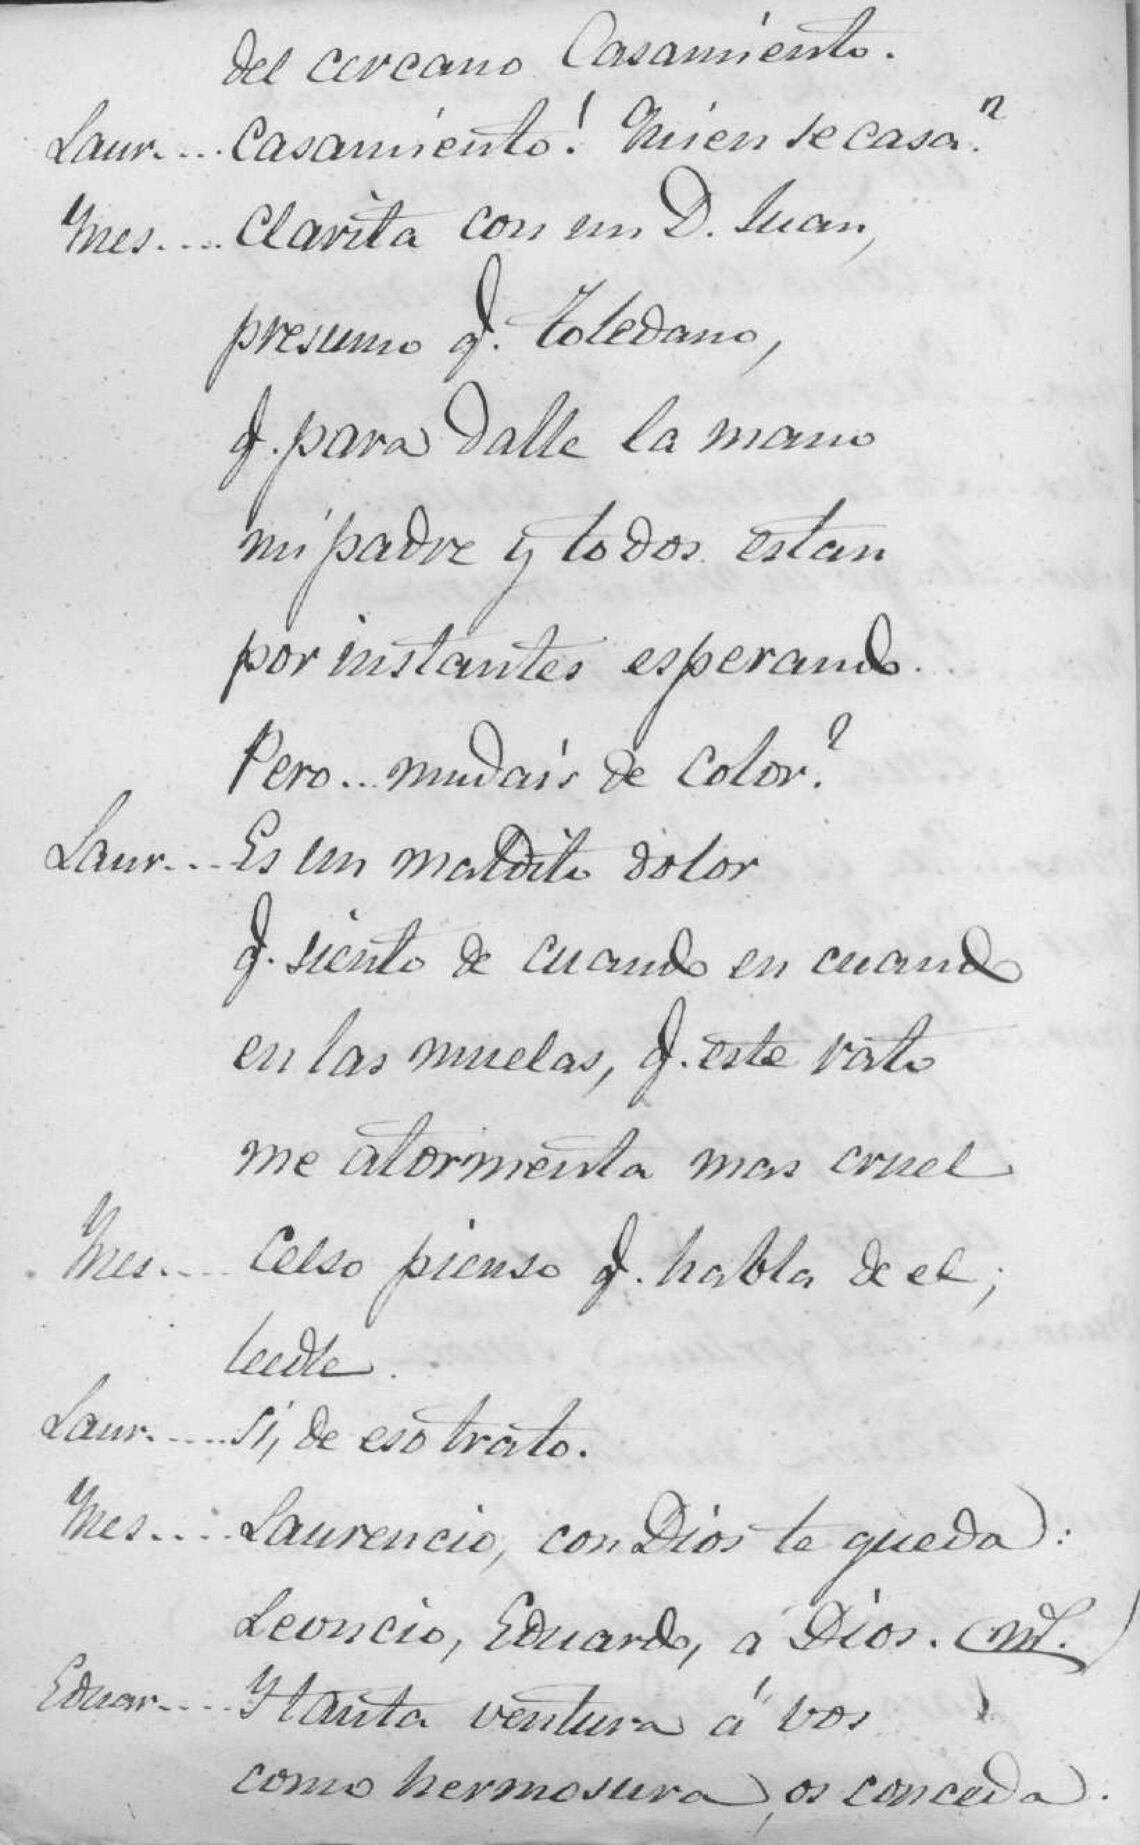 del cercano Casamiento.
Laur.... Casamiento! Quien se casa?
Ynes.... Clarita con un D. Juan,
presumo q. toledano,
q. para dalle la mano
mi padre y todos estan
por instantes esperando.
Pero... mudais de color?
Laur... Es un maldito dolor
q. siento de cuando en cuando
en las muelas, q. este rato
me atormenta mas cruel
Ynes.... Celso pienso q. habla de el;
leedle.
Laur..... Si, de eso trato.
Ynes.... Laurencio, con Dios te queda:
Leoncio, Eduardo, a Dios.
Eduar.... Y tanta ventura á vos
como hermosura, os conceda.